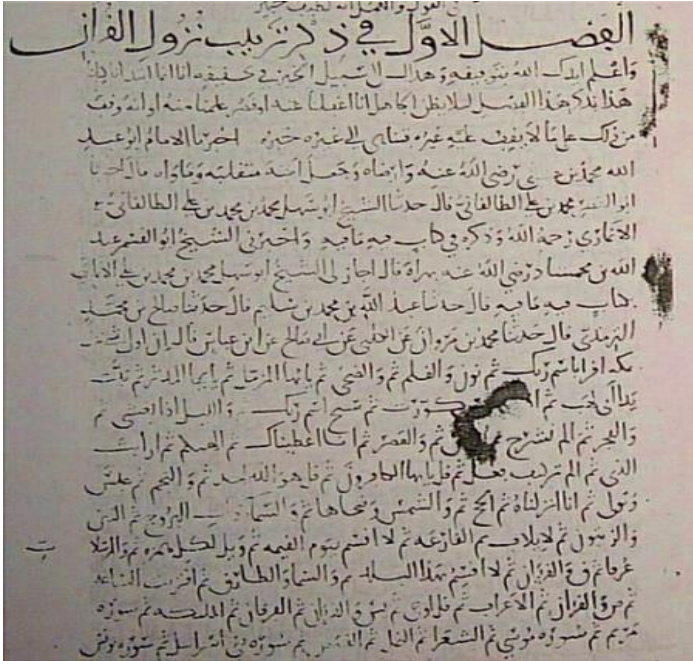 الفصل الاول في ذكر ترتيب نزول القرآن
واعلم ايدك الله بتوفيقه وهداك لسبيل الخير في
هذا الفصل ليلا يظن
من ذلك على ما لا يقف عليه غيره الى غيره خبره اخبرنا الامام ابو عبد
الله محمد بن رضي الله عنه وارضاه وجعل الجنة منقلبه وماواه قال اخبرنا
محمد بن علي الطالقاني قال حدثنا الشيخ ابو سهل محمد بن محمد بن علي الطالقاني
الانماري رحمه الله وذكره في كتاب فيه ما فيه واخبرني الشيخ ابو القسم عبد
الله بن محمشاد رضي الله عنه قال اجاز لي الشيخ ابو سهل محمد بن محمد بن علي
كتاب فيه ما فيه قال حدثنا عبد الله بن محمد بن سليم قال حدثنا صالح بن محمد
الترمذي قال حدثنا محمد بن مروان عن الكلبي عن ابي صالح عن ابن عباس قال ان اول
بمكة اقرا باسم ربك ثم نون والقلم ثم والضحى ثم يا ايها المزمل ثم يا ايها المدثر ثم تبت
يدا ابي لهب ثم كورت ثم سبح اسم ربك والليل اذا يغشى ثم
والفجر ثم الم نشرح ثم والعصر ثم انا اعطيناك ثم الهيكم ثم ارايت
الذي ثم الم تر كيف فعل ثم قل يا ايها الكافرون ثم قل هو الله احد ثم والنجم ثم عبس
وتولى ثم انا انزلناه ثم والشمس وضحاها ثم والسماء البروج ثم التين
والزيتون ثم لايلاف ثم القارعة ثم لا اقسم بيوم القيمة ثم ويل لكل همزة ثم والمرسلا
عرفا ثم ق والقران ثم لا اقسم بهذا البلد ثم والسماء والطارق ثم اقتربت الساعة
ثم ص والقران ثم الاعراف ثم قل اوحي ثم يس والقران ثم الفرقان ثم الملئكة ثم سورة
مريم ثم سورة موسى ثم الشعرا ثم النمل ثم القصص ثم سورة بني اسرائيل ثم سورة يونس